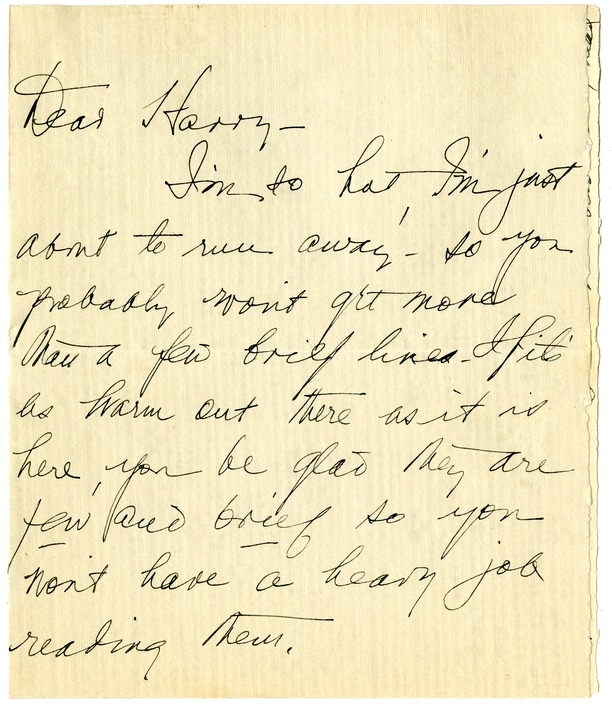 Dear Harry—
I'm so hot, I'm just
about to run away— so you
probably won't get more
than a few brief lines. If it's
as warm out there as it is
here, you be glad they are
few and brief so you
won't have a heavy job
reading them.